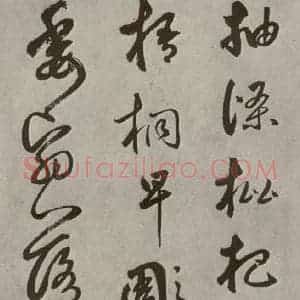 抽條枇杷
梧桐早彫
委翳落
Shufaziliao.COM